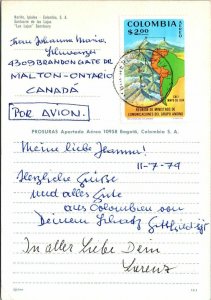 Nariño, Ipiales - Colombia, S. A.
Santuario de las Lajas
"Las Lajas" Sanctuary
COLOMBIA
$2.00
CALI
MAYO DE 1974
REUNION DE MINISTROS DE
COMUNICACIONES DEL GRUPO ANDINO
Frau Johanna Maria
4309 BRANDON GATE DR
MALTON-ONTARIO
CANADÁ
POR AVION.
PROSURAS Apartado Aéreo 10958 Bogotá, Colombia S. A.
Meine liebe Jeanna!
11-7-79
Herzliche Grüße
und alles Gute
aus Colombien von
Deinem Schatz
In aller Liebe Dein
Lorenz